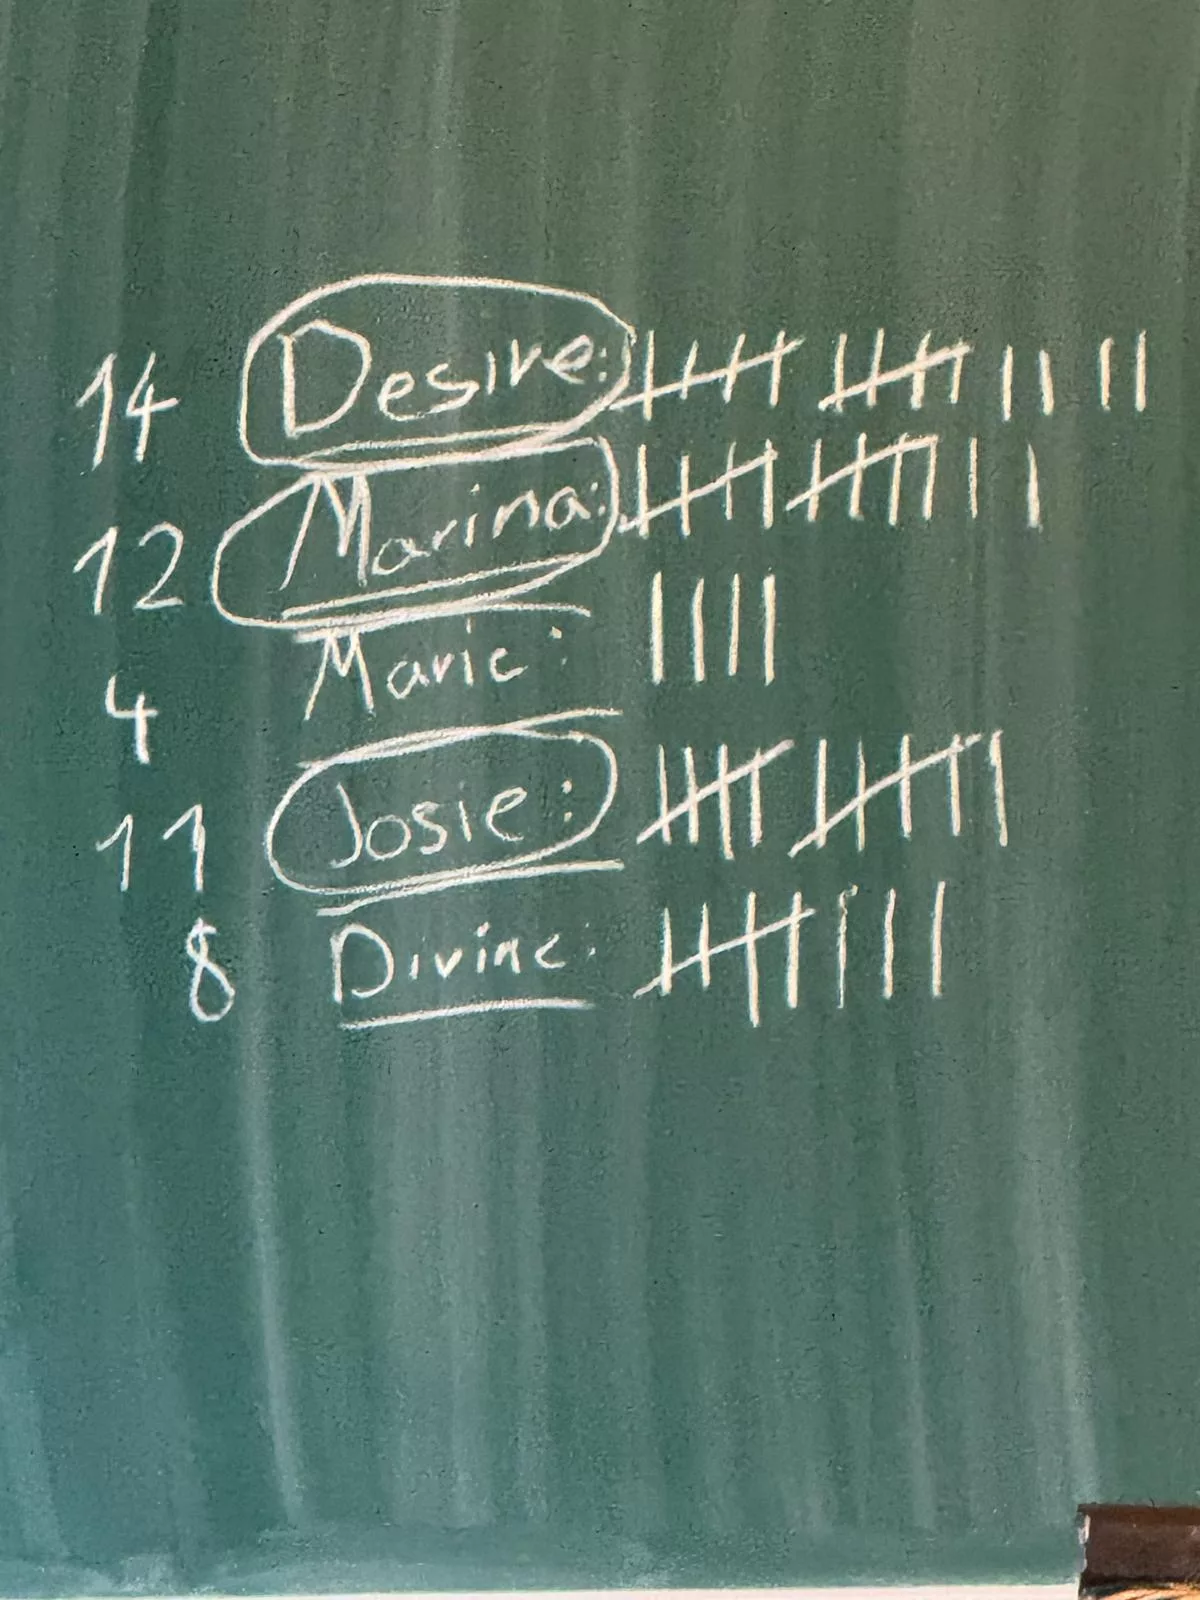 14 Desire: 𝍸 𝍸 || ||
12 Marina: 𝍸 𝍸 | |
4 Marie: ||||
11 Josie: 𝍸 𝍸 |
8 Divine: 𝍸 |||